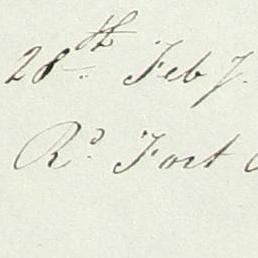 28th Feby.
Rd. Fort